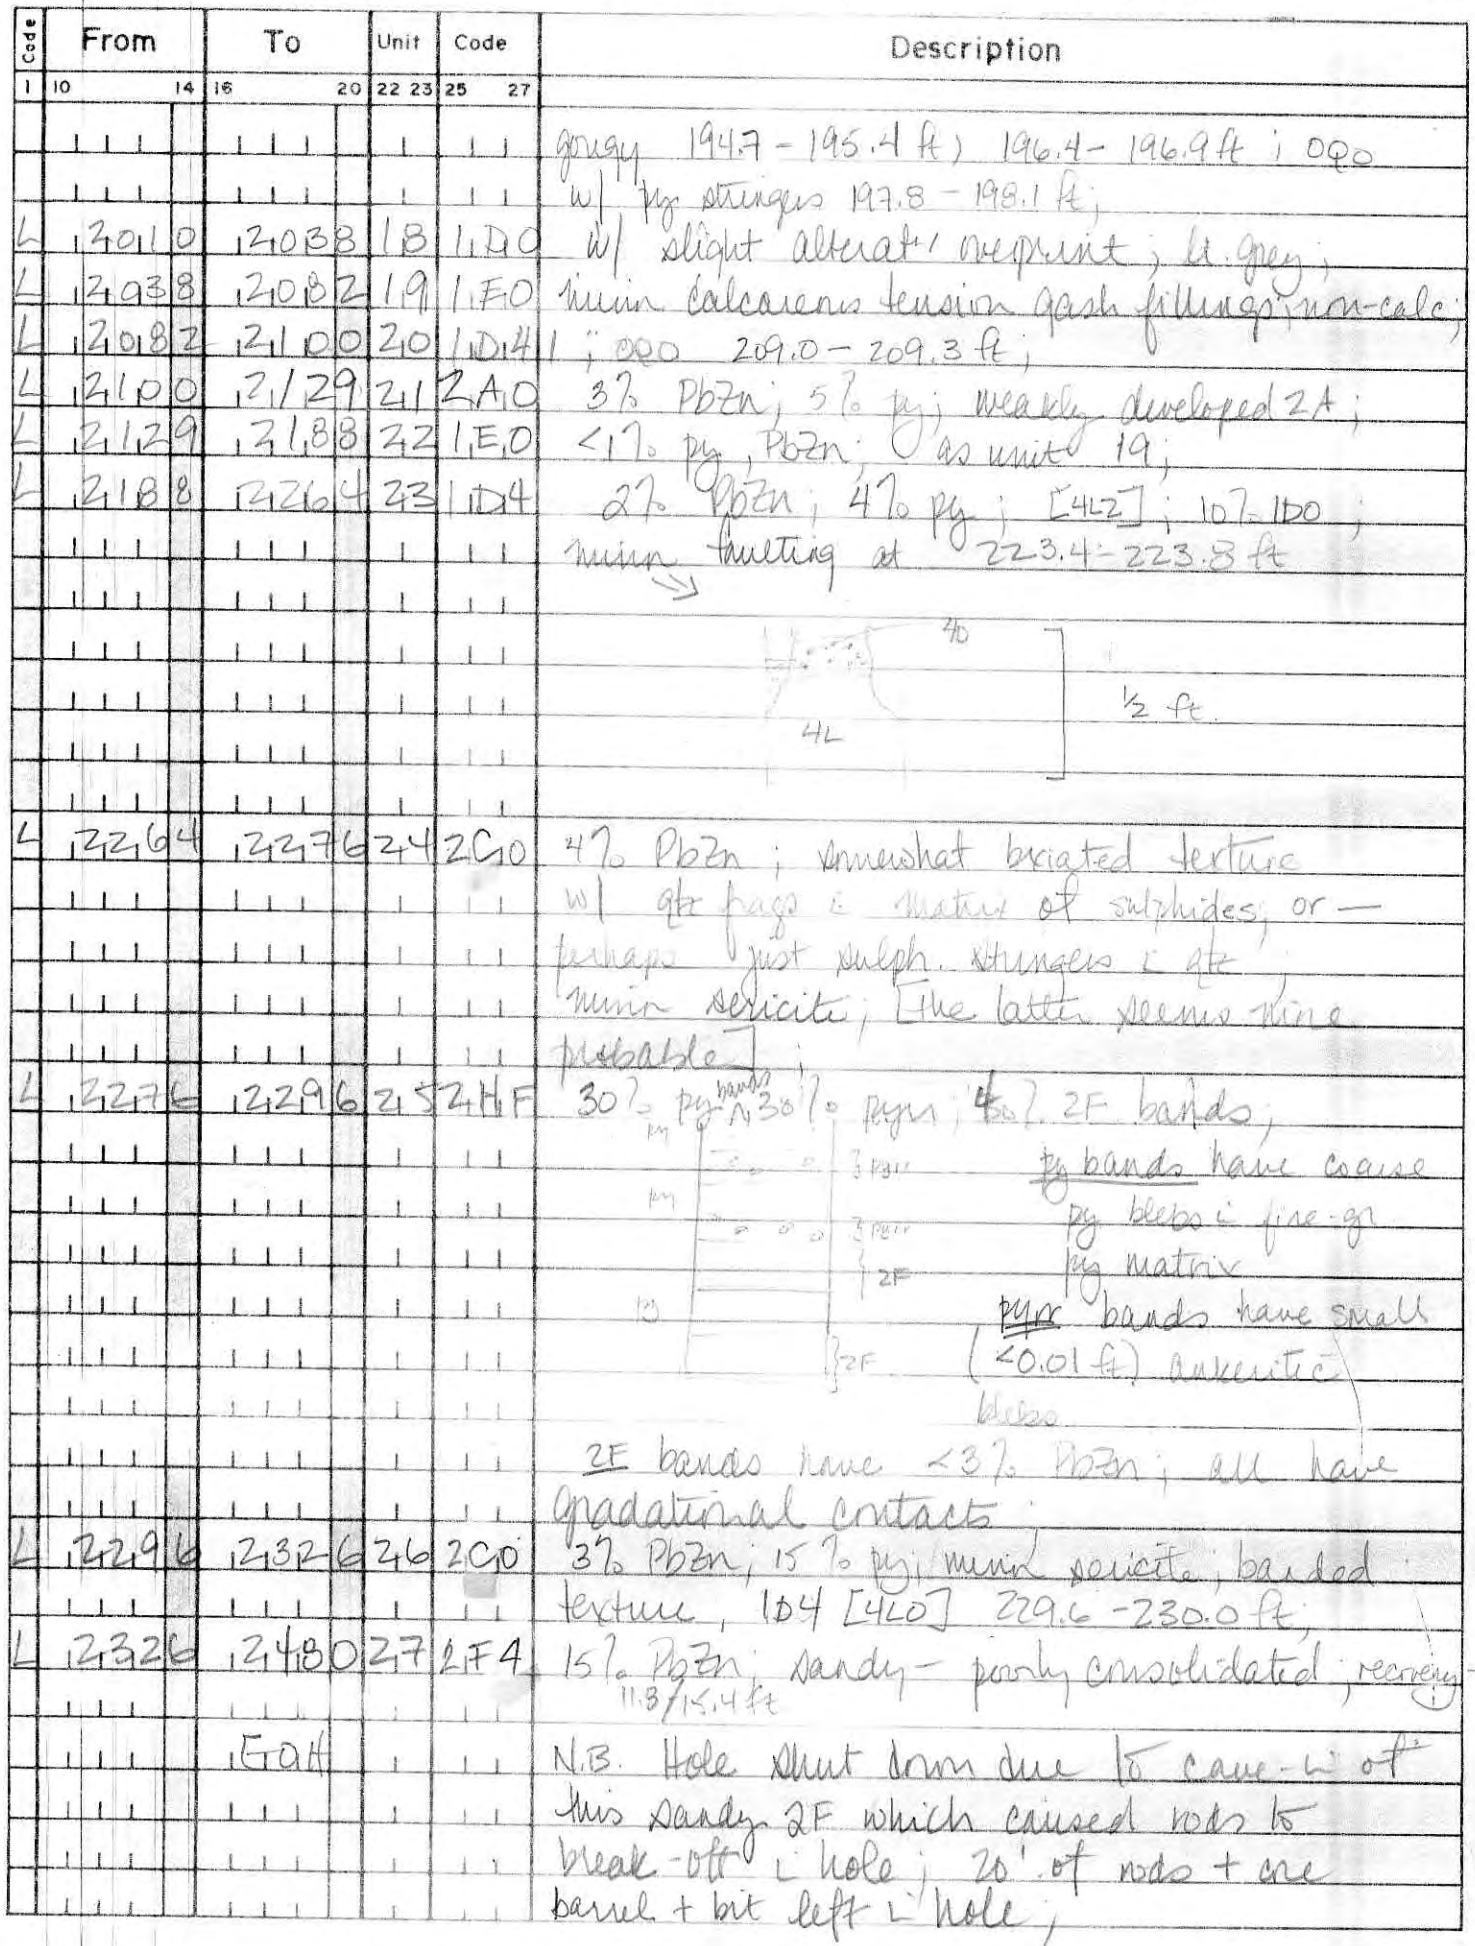 Code From To Unit Code Description
1 10 14 16 20 22 23 25 27
gougy 194.7 - 195.4 ft; 196.4 - 196.9 ft; OQO
w/ py stringers 197.8 - 198.1 ft;
L 2010 2038 18 1D0 w/ slight alterat' overprint; lt. grey;
L 2038 2082 19 1E0 minor calcareous tension gash fillings; non-calc;
L 2082 2100 20 1D4 1 ; OQO 209.0 - 209.3 ft;
L 2100 2129 21 2A0 3% PbZn; 5% py; weakly developed 2A;
L 2129 2188 22 1E0 <1% py, PbZn; as unit 19;
L 2188 2264 23 1D4 2% PbZn; 4% py; [4L2]; 10% 1D0;
minor faulting at 223.4 - 223.8 ft
4D
½ ft.
4L
L 2264 2276 24 2C0 4% PbZn; somewhat bxiated texture
w/ qtz frags i matrix of sulphides, or —
perhaps just sulph. stringers i qtz;
minor sericite; [the latter seems more
probable];
L 2276 2296 25 2HF 30% py bands, 30% pyrr; 40% 2F bands;
py
pyrr py bands have coarse
py
py blebs i fine-gr
pyrr
2F py matrix
py pyrr bands have small
2F (<0.01 ft) ankeritic
blebs
2F bands have <3% PbZn; all have
gradational contacts;
L 2296 2326 26 2C0 3% PbZn; 15% py; minor sericite; banded
texture, 1D4 [4L0] 229.6 - 230.0 ft;
L 2326 2480 27 2F4 15% PbZn; sandy - poorly consolidated; recovery -
11.8/15.4 ft
EOH N.B. Hole shut down due to cave-i of
this sandy 2F which caused rods to
break-off i hole; 20' of rods + core
barrel + bit left i hole;